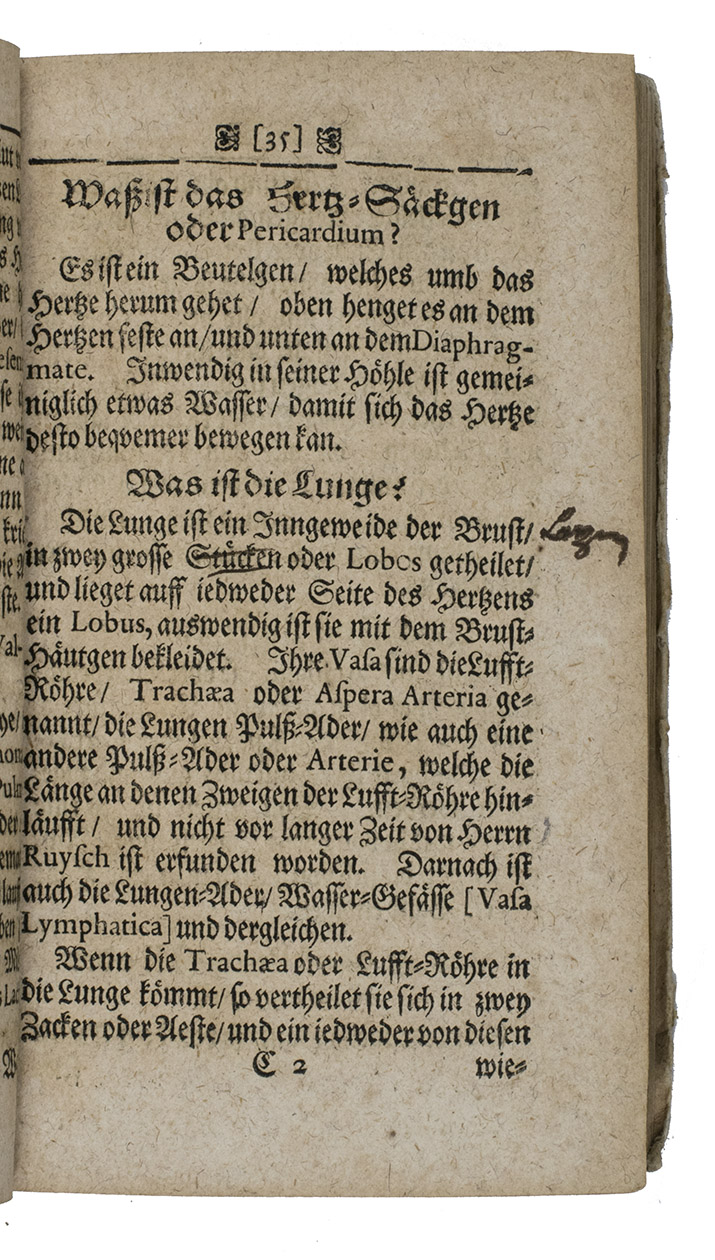 [35]
Waß ist das Hertz-Säckgen
oder Pericardium?
Es ist ein Beutelgen/ welches umb das
Hertze herum gehet/ oben henget es an dem
Hertzen feste an/und unten an dem Diaphrag-
mate. Inwendig in seiner Höhle ist gemei-
niglich etwas Wasser/ damit sich das Hertze
desto beqvemer bewegen kan.
Was ist die Lunge?
Die Lunge ist ein Inngeweide der Brust/
in zwey grosse Stücken oder Lobos getheilet/
und lieget auff iedweder Seite des Hertzens
ein Lobus, auswendig ist sie mit dem Brust-
Häutgen bekleidet. Ihre Vasa sind die Lufft-
Röhre/ Trachæa oder Aspera Arteria ge-
nannt/ die Lungen Pulß-Ader/ wie auch eine
andere Pulß-Ader oder Arterie, welche die
Länge an denen Zweigen der Lufft-Röhre hin-
läufft/ und nicht vor langer Zeit von Herrn
Ruysch ist erfunden worden. Darnach ist
auch die Lungen-Ader/ Wasser-Gefässe [Vasa
Lymphatica] und dergleichen.
Wenn die Trachæa oder Lufft-Röhre in
die Lunge kömmt/ so vertheilet sie sich in zwey
Zacken oder Aeste/ und ein iedweder von diesen
C 2 wie-